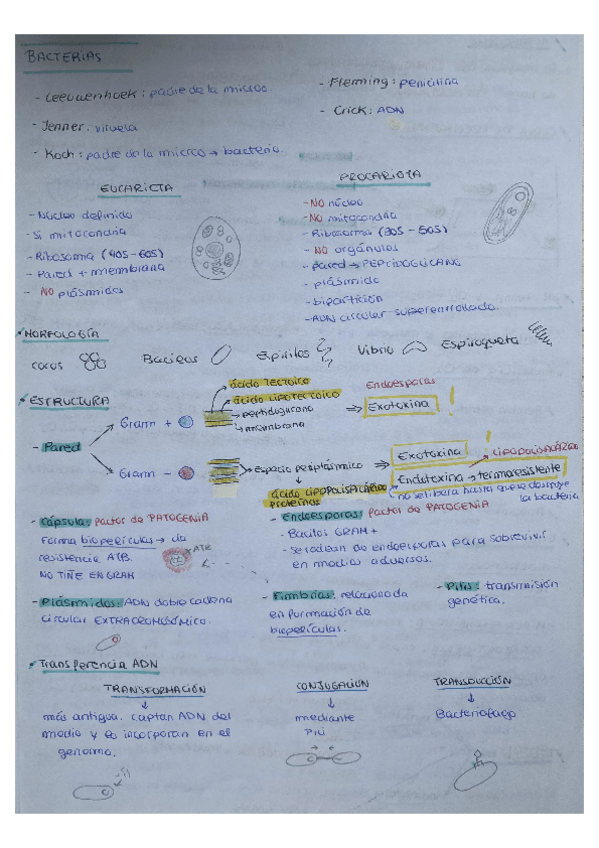 BACTERIAS
- Leeuwenhoek: padre de la micro
- Fleming: penicilina
- Crick: ADN
- Jenner: viruela
- Koch: padre de la micro → bacteria.
EUCARIOTA
- Núcleo definido
- Sí mitocondria
- Ribosoma (40S-60S)
- Pared + membrana
- NO plásmidos
PROCARIOTA
- NO núcleo
- NO mitocondria
- Ribosomas (30S-50S)
- NO orgánulos
- pared → PEPTIDOGLICANO
- plásmido
- bipartición
- ADN circular superenrollado
MORFOLOGÍA
cocos
Bacilos
Espirilos
Vibrio
Espiroqueta
ESTRUCTURA
- Pared
Gram +
ácido TECTOICO
ácido LIPOTECTOICO
peptidoglicano
membrana
⇒ Exotoxina !
Endoesporas
Gram -
Espacio periplásmico
ácido LIPOPOLISACÁRIDO
proteínas
Exotoxina !
Endotoxina → termoresistente
LIPOPOLISACÁRIDO
(no se libera hasta que se destruye
la bacteria
- Cápsula: Factor de PATOGENIA
Forma biopelículas → da
resistencia ATB.
NO TIÑE EN GRAM
ATB
- Endoesporas: Factor de PATOGENIA
- Bacilos GRAM +
- Se rodean de endoesporas para sobrevivir
en medios adversos.
- Plásmidos: ADN doble cadena
circular EXTRACROMOSÓMICO.
- Fimbrias: relacionada
en formación de
biopelículas.
- Pilis: transmisión
genética.
Transferencia ADN
TRANSFORMACIÓN
más antigua. captan ADN del
medio y lo incorporan en el
genoma.
CONJUGACIÓN
mediante
Pili
TRANSDUCCIÓN
Bacteriófago